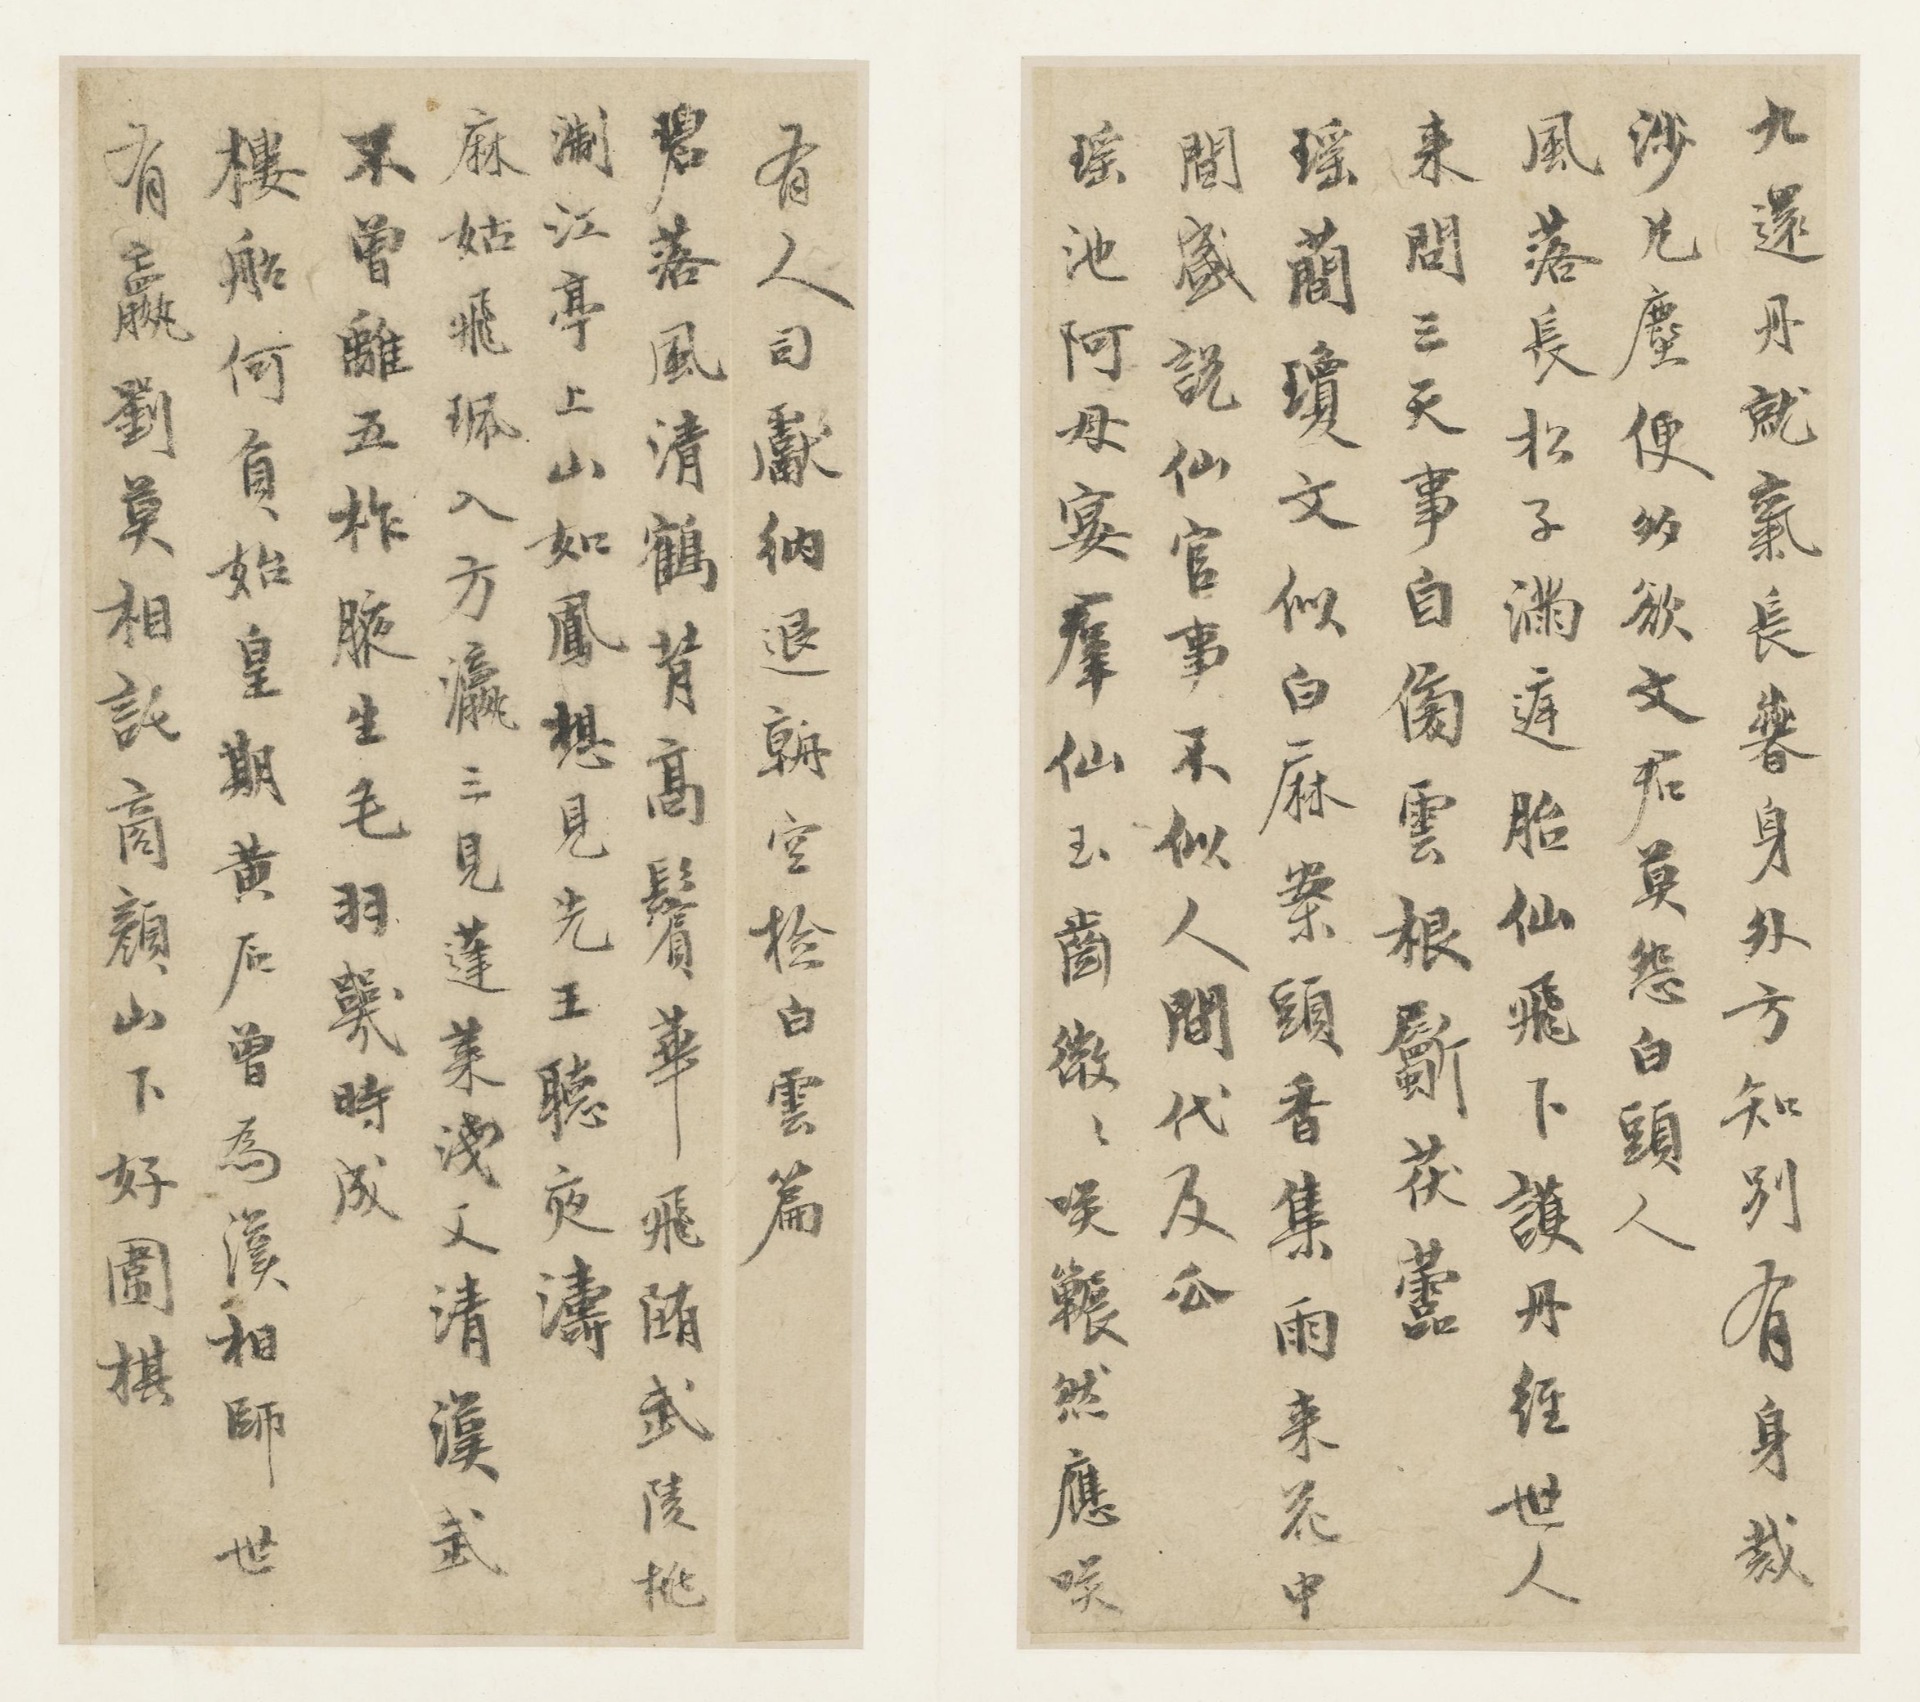 九還丹就氣長春身外方知別有身裁
涉凡塵便多欲文君莫怨白頭人
風落長松子滿庭胎仙飛下護丹經世人
来問三天事自傷雲根斸茯蕾
瑶蕳瓊文似白麻案頭香集雨来花中
間盛説仙官事不似人間代及瓜
瑶池阿母宴羣仙玉齒微〻咲囅然應咲
有人司獻納退朝空檢白雲篇
碧落風清鶴背高鬢華飛随武陵桃
淛江亭上山如鳳想見先王聽夜濤
麻姑飛珮入方瀛三見蓬莱淺又清漢武
不曾離五柞腋生毛羽幾時成
樓船何負始皇期黄石曾為漢相師世
有嬴劉莫相詫商顔山下好圍棋